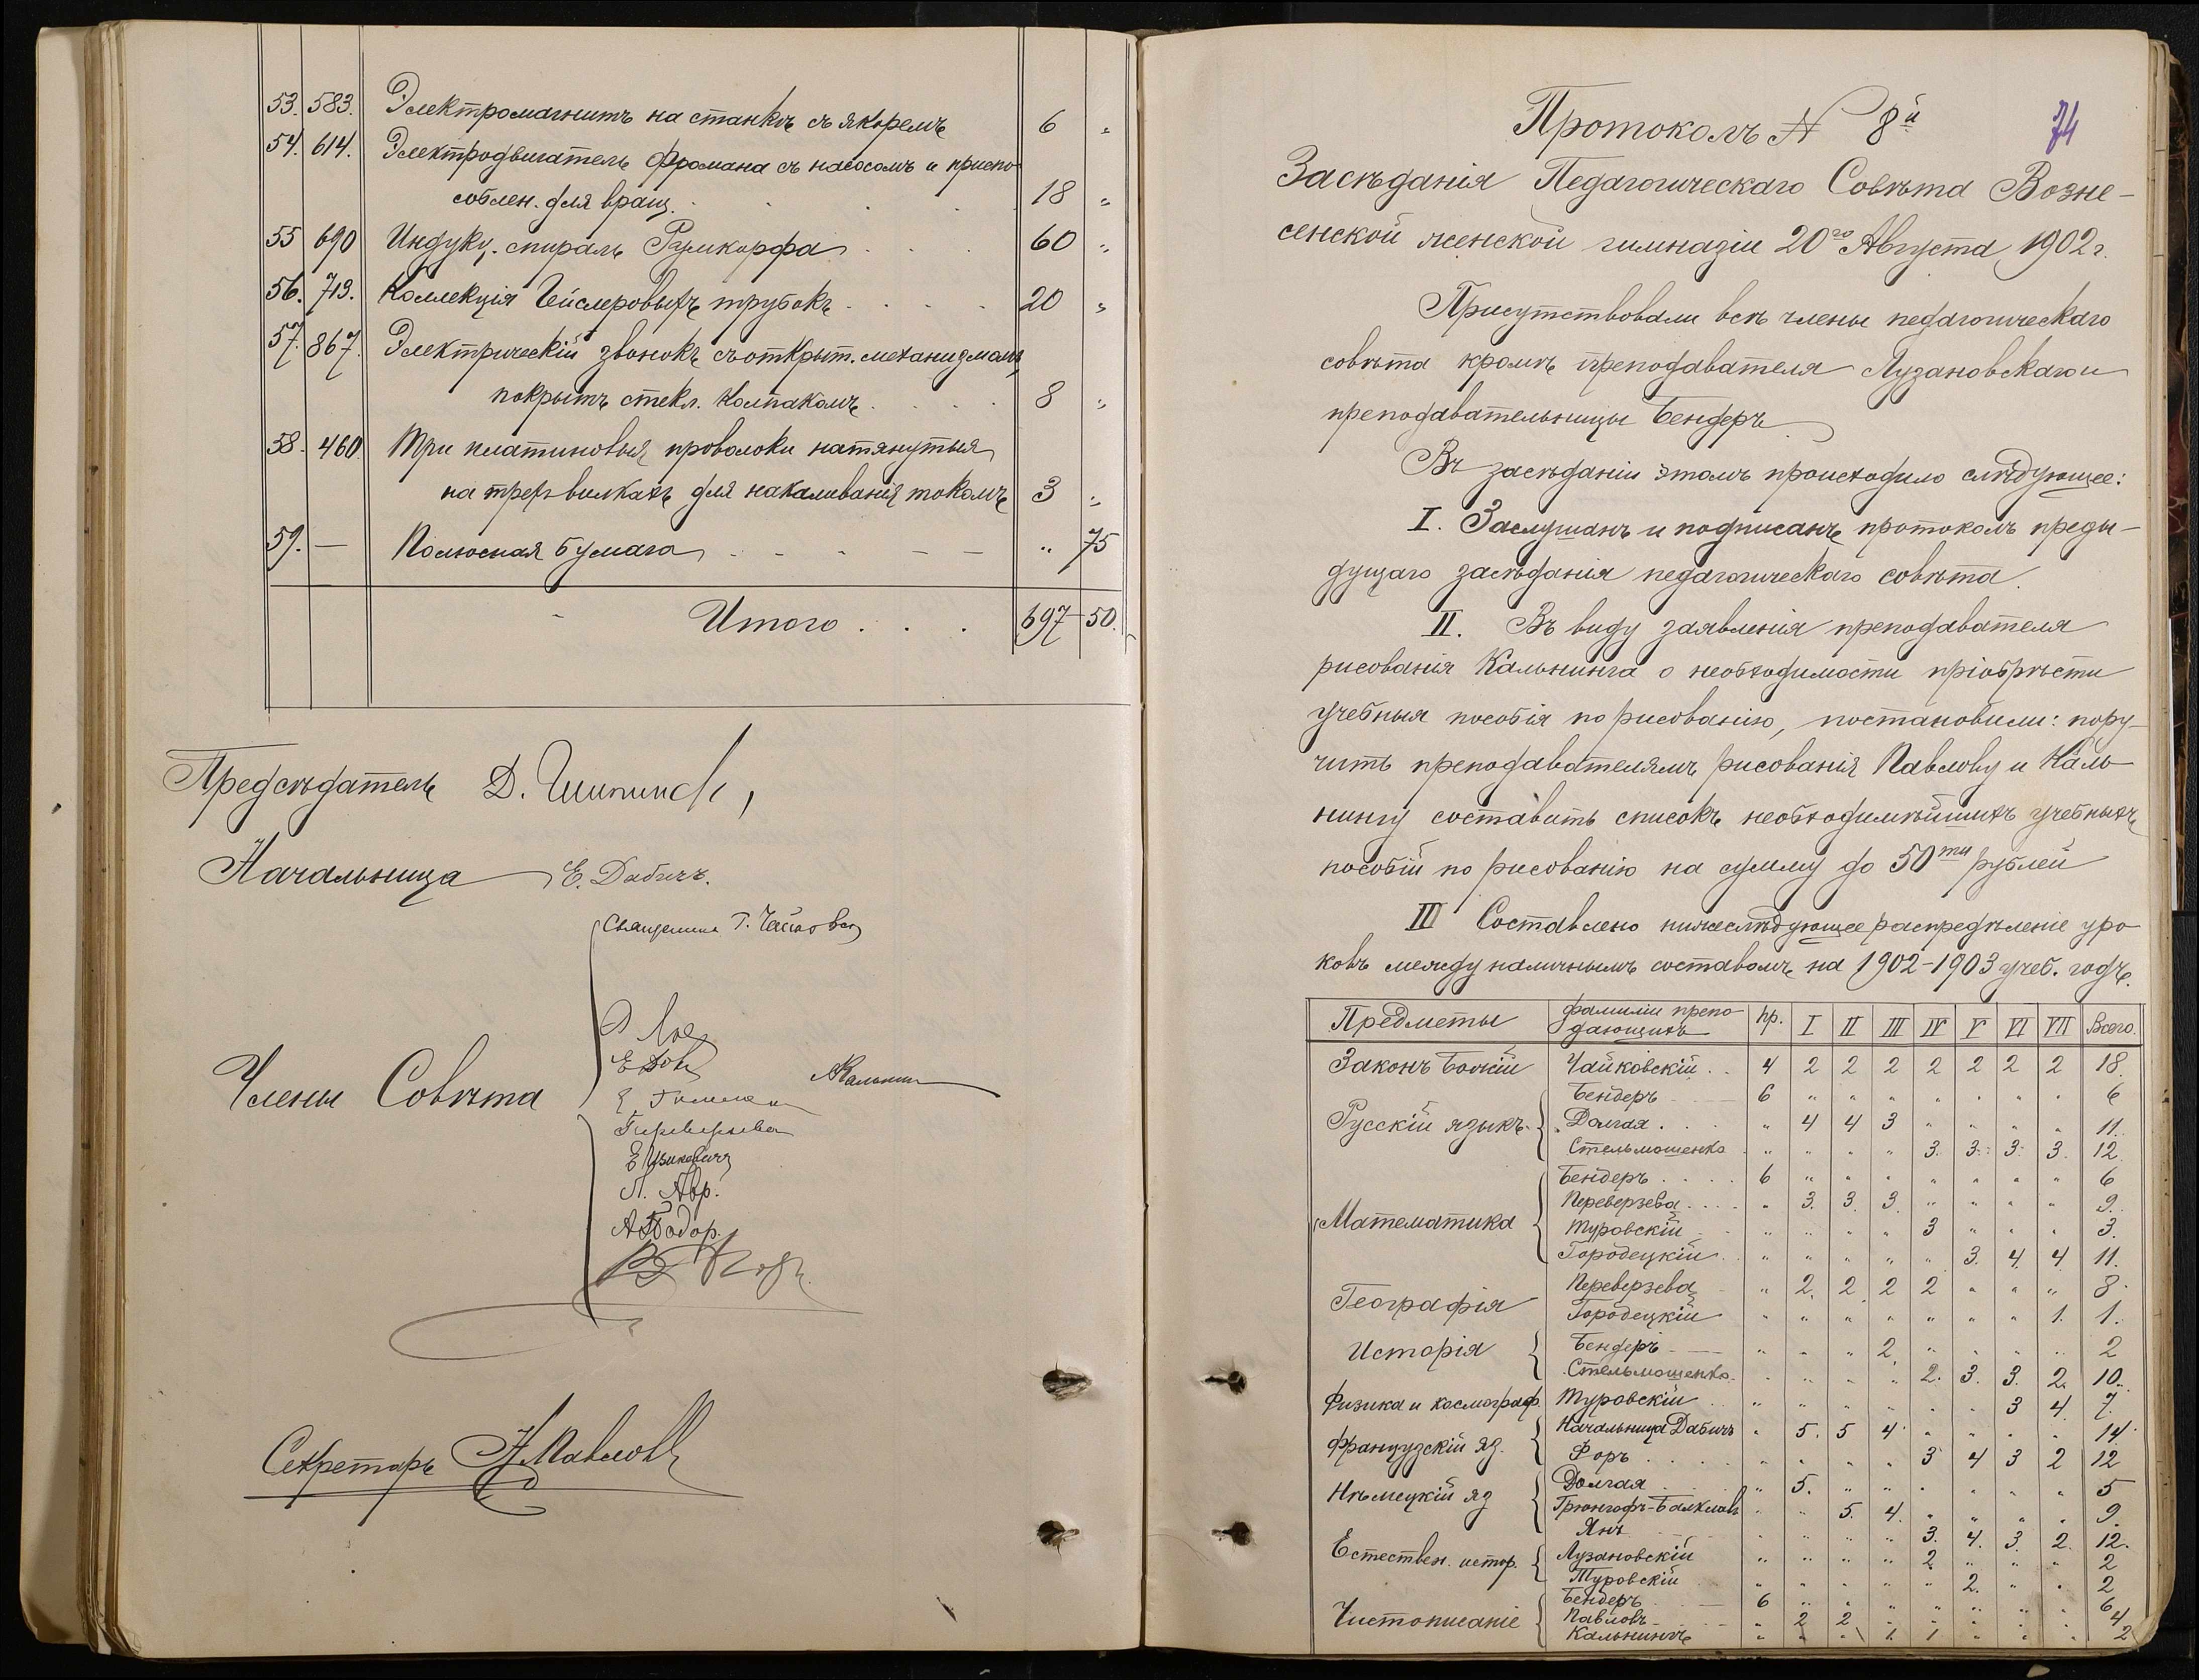 53. 583. Электромагнитъ на станкѣ съ якоремъ 6 "
54. 614. Электродвигатель Фромана съ насосомъ и приспо-
соблен. для вращ. . . . 18 "
55 690 Индукц. спираль Румкорфа . . . 60 "
56. 713. Коллекція Гейслеровыхъ трубокъ . . . . 20 "
57. 867. Электрическій звонокъ съ открыт. механизмомъ,
покрытъ стекл. колпакомъ . . . . 8 "
58. 460. Три платиновыя проволоки натянутыя
на трехъ вилкахъ для накаливанія токомъ 3 "
59. — Полюсная бумага - - - - - " 75
Итого . . . 697 50.
Предсѣдатель Д.
Начальница Е. Дабичъ.
Священникъ Г. Чайковскій
Члены Совѣта
Переверзева
Секретарь Н. Павловъ
74
Протоколъ № 8й
Засѣданія Педагогическаго Совѣта Возне-
сенской женской гимназіи 20го Августа 1902 г.
Присутствовали всѣ члены педагогическаго
совѣта кромѣ преподавателя Лузановскаго и
преподавательницы Бендеръ
Въ засѣданіи этомъ происходило слѣдующее:
I. Заслушанъ и подписанъ протоколъ преды-
дущаго засѣданія педагогическаго совѣта.
II. Въ виду заявленія преподавателя
рисованія Кальнинга о необходимости пріобрѣсти
учебныя пособія по рисованію, постановили: пору-
чить преподавателямъ рисованія Павлову и Каль-
нингу составить списокъ необходимѣйшихъ учебныхъ
пособій по рисованію на сумму до 50ти рублей
III Составлено нижеслѣдующее распредѣленіе уро-
ковъ между наличнымъ составомъ на 1902-1903 учеб. годъ.
Предметы Фамиліи препо-дающихъ пр. I II III IV V VI VII Всего.
Законъ Божій Чайковскій . . 4 2 2 2 2 2 2 2 18.
Бендеръ 6 " " " " " " " 6
Русскій языкъ Долгая . . . " 4 4 3 " " " " 11.
Стельмошенко " " " " 3. 3. 3. 3. 12.
Бендеръ . . . . 6 " " " " " " " 6
Переверзева . . . . " 3. 3. 3. " " " " 9.
Математика Туровскій " " " " 3 " " " 3.
Городецкій " " " " " 3. 4. 4. 11.
Переверзева " 2. 2. 2 2 " " " 8.
Географія Городецкій " " " " " " " 1. 1.
Исторія Бендеръ " " " 2. " " " " 2
Стельмошенко " " " " 2. 3. 3. 2. 10.
Физика и космограф. Туровскій " " " " " " 3 4. 7.
Начальница Дабичъ " 5. 5 4. " " " " 14.
Французскій яз. Форъ " " " " 3 4 3 2 12
Долгая " 5. " " " " " " 5
Нѣмецкій яз " " 5. 4. " " " " 9.
Янъ " " " " 3. 4. 3. 2. 12.
Естествен. истор. Лузановскій " " " " 2. " " " 2
Туровскій " " " " " 2. " " 2
Бендеръ 6 " " " " " " " 6
Чистописаніе Павловъ " 2 2 " " " " " 4
Кальнингъ " " " 1. 1 " " " 2